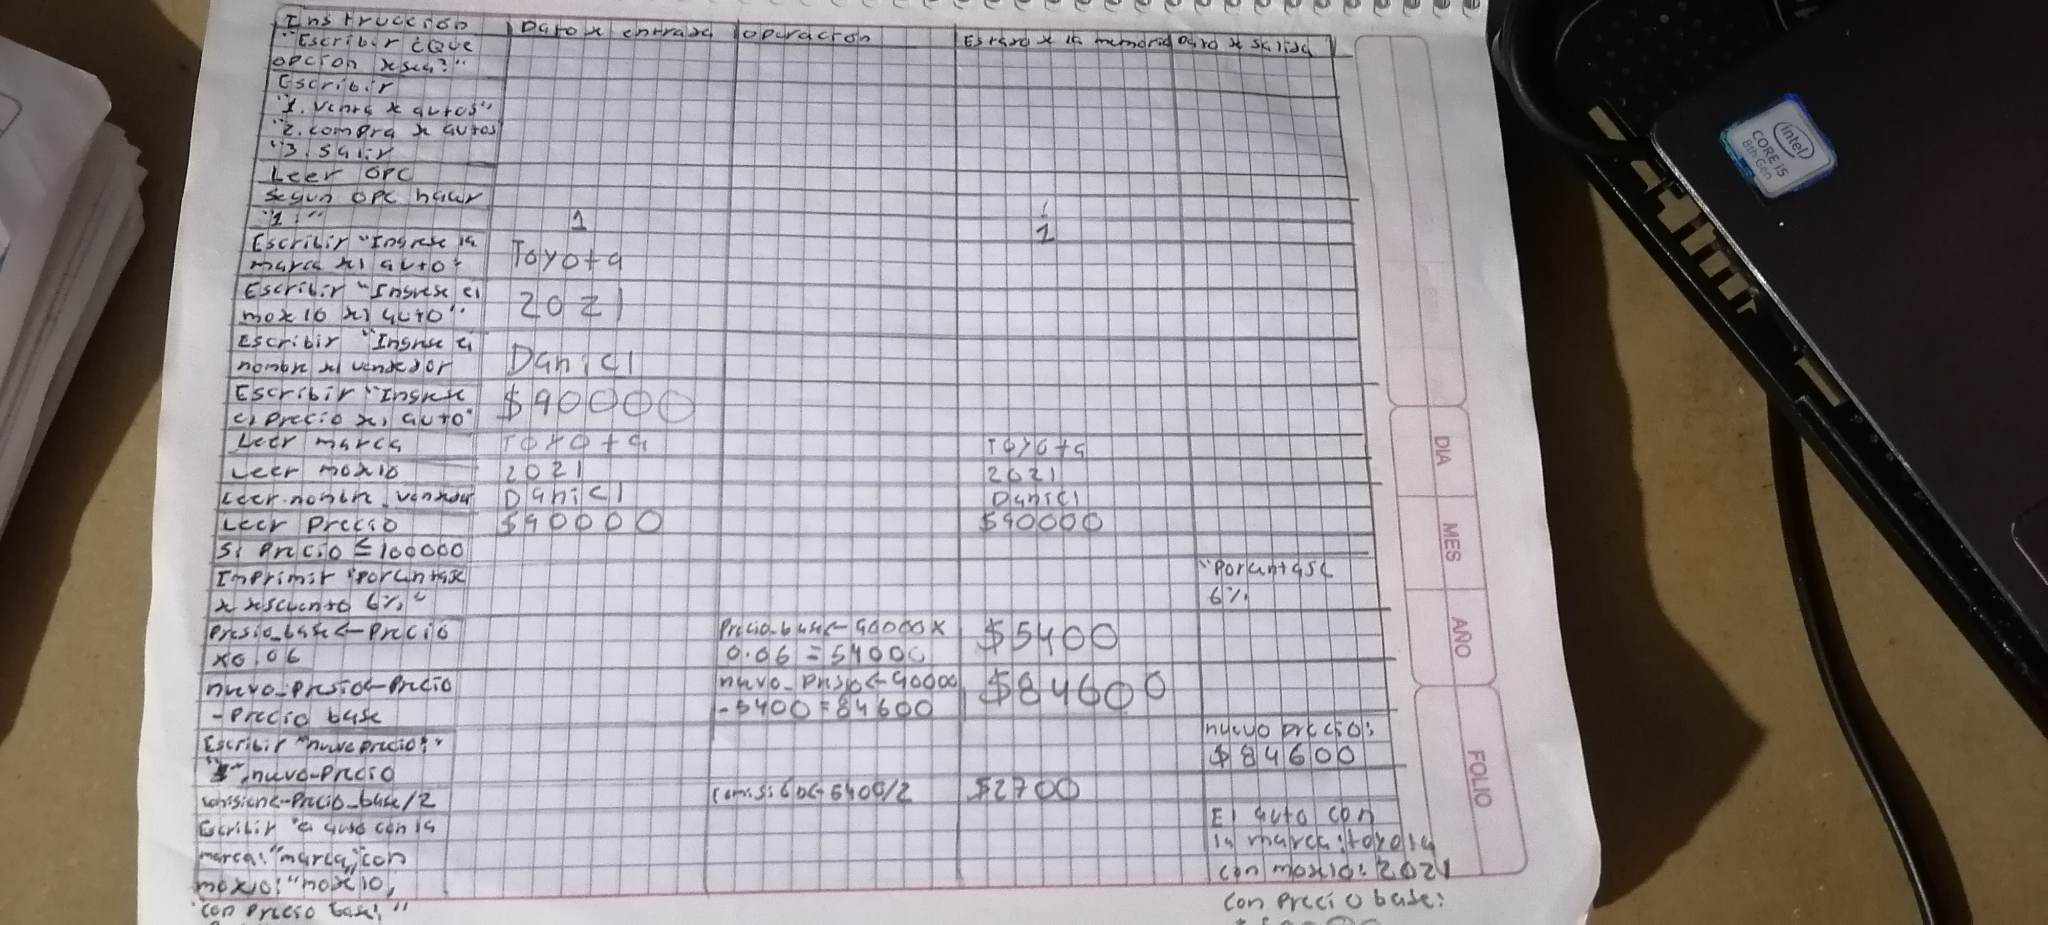 Instrucción | Dato x entrada | operación | Estado x la memoria | dato x salida
"Escribir ¿Que
opcion xsea?"
Escribir
"1. venta x autos"
"2. compra x autos
"3. salir
Leer OPC
segun OPC hacer
"1:" 1 1
Escribir "Ingrese la
marca xl auto: Toyota
Escribir "Ingrese el
moxlo xl auto": 2021
Escribir "Ingrese el
nombre xl venxdor Daniel
Escribir "Ingrese
el precio xl auto" $90000
Leer marca Toyota Toyota
Leer moxlo 2021 2021
Leer nombre_venxdor Daniel Daniel
Leer precio $90000 $90000
Si precio ≤ 100000
Imprimir "porcentaje "Porcentaje
x xscuento 6%" 6%
Presio_base<-Precio Precio_base<-90000x $5400
x0.06 0.06 = 54000
nuevo_presio<-Precio nuevo_presio<-90000 $84600
-Precio base -5400=84600
Escribir "nuevo precio:" nuevo precio:
"$", nuevo-precio $84600
comisione-Precio_base/2 comision<-5400/2 $2700
Escribir "el auto con la El auto con
marca:"marca,"con la marca:toyota
moxlo:"moxlo, con moxlo: 2021
"con precio base:" con precio base:
DIA
MES
AÑO
FOLIO
intel
CORE i5
8th Gen